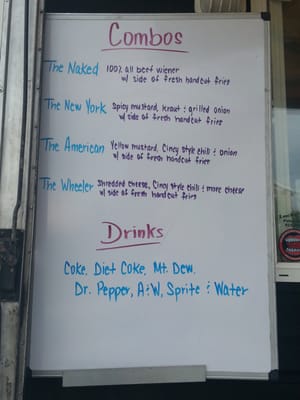 Combos
The Naked 100% all beef wiener
w/ side of fresh handcut fries
The New York Spicy mustard, kraut & grilled onion
w/ side of fresh handcut fries
The American Yellow mustard, Cincy style chili & onion
w/ side of fresh handcut fries
The Wheeler Shredded cheese, Cincy style chili & more cheese
w/ side of fresh handcut fries
Drinks
Coke, Diet Coke, Mt. Dew,
Dr. Pepper, A&W, Sprite & Water